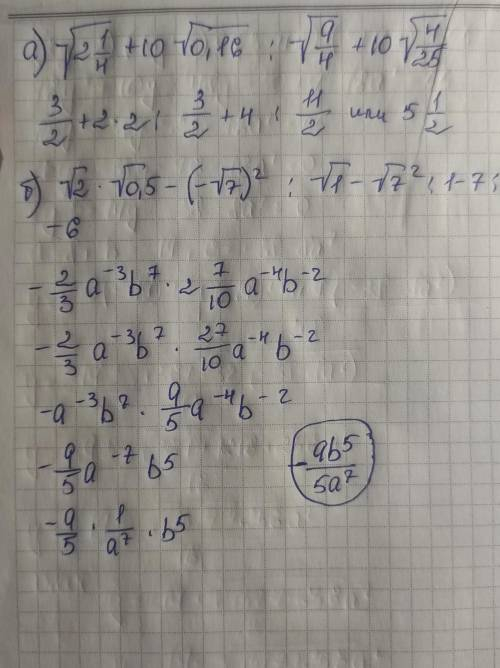 а) √(2 1/4) + 10 √(0,16) ; √(9/4) + 10 √(4/25)
3/2 + 2 · 2 ; 3/2 + 4 ; 11/2 или 5 1/2
б) √2 · √0,5 − (−√7)² ; √1 − √7² ; 1-7 ;
−6
− 2/3 a⁻³b⁷ · 2 7/10 a⁻⁴b⁻²
− 2/3 a⁻³b⁷ · 27/10 a⁻⁴b⁻²
−a⁻³b⁷ · 9/5 a⁻⁴b⁻²
− 9/5 a⁻⁷ b⁵
− 9b⁵/5a⁷
− 9/5 · 1/a⁷ · b⁵